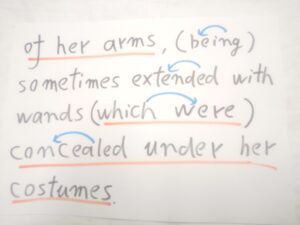 of her arms, (being)
sometimes extended with
wands (which were)
concealed under her
costumes.